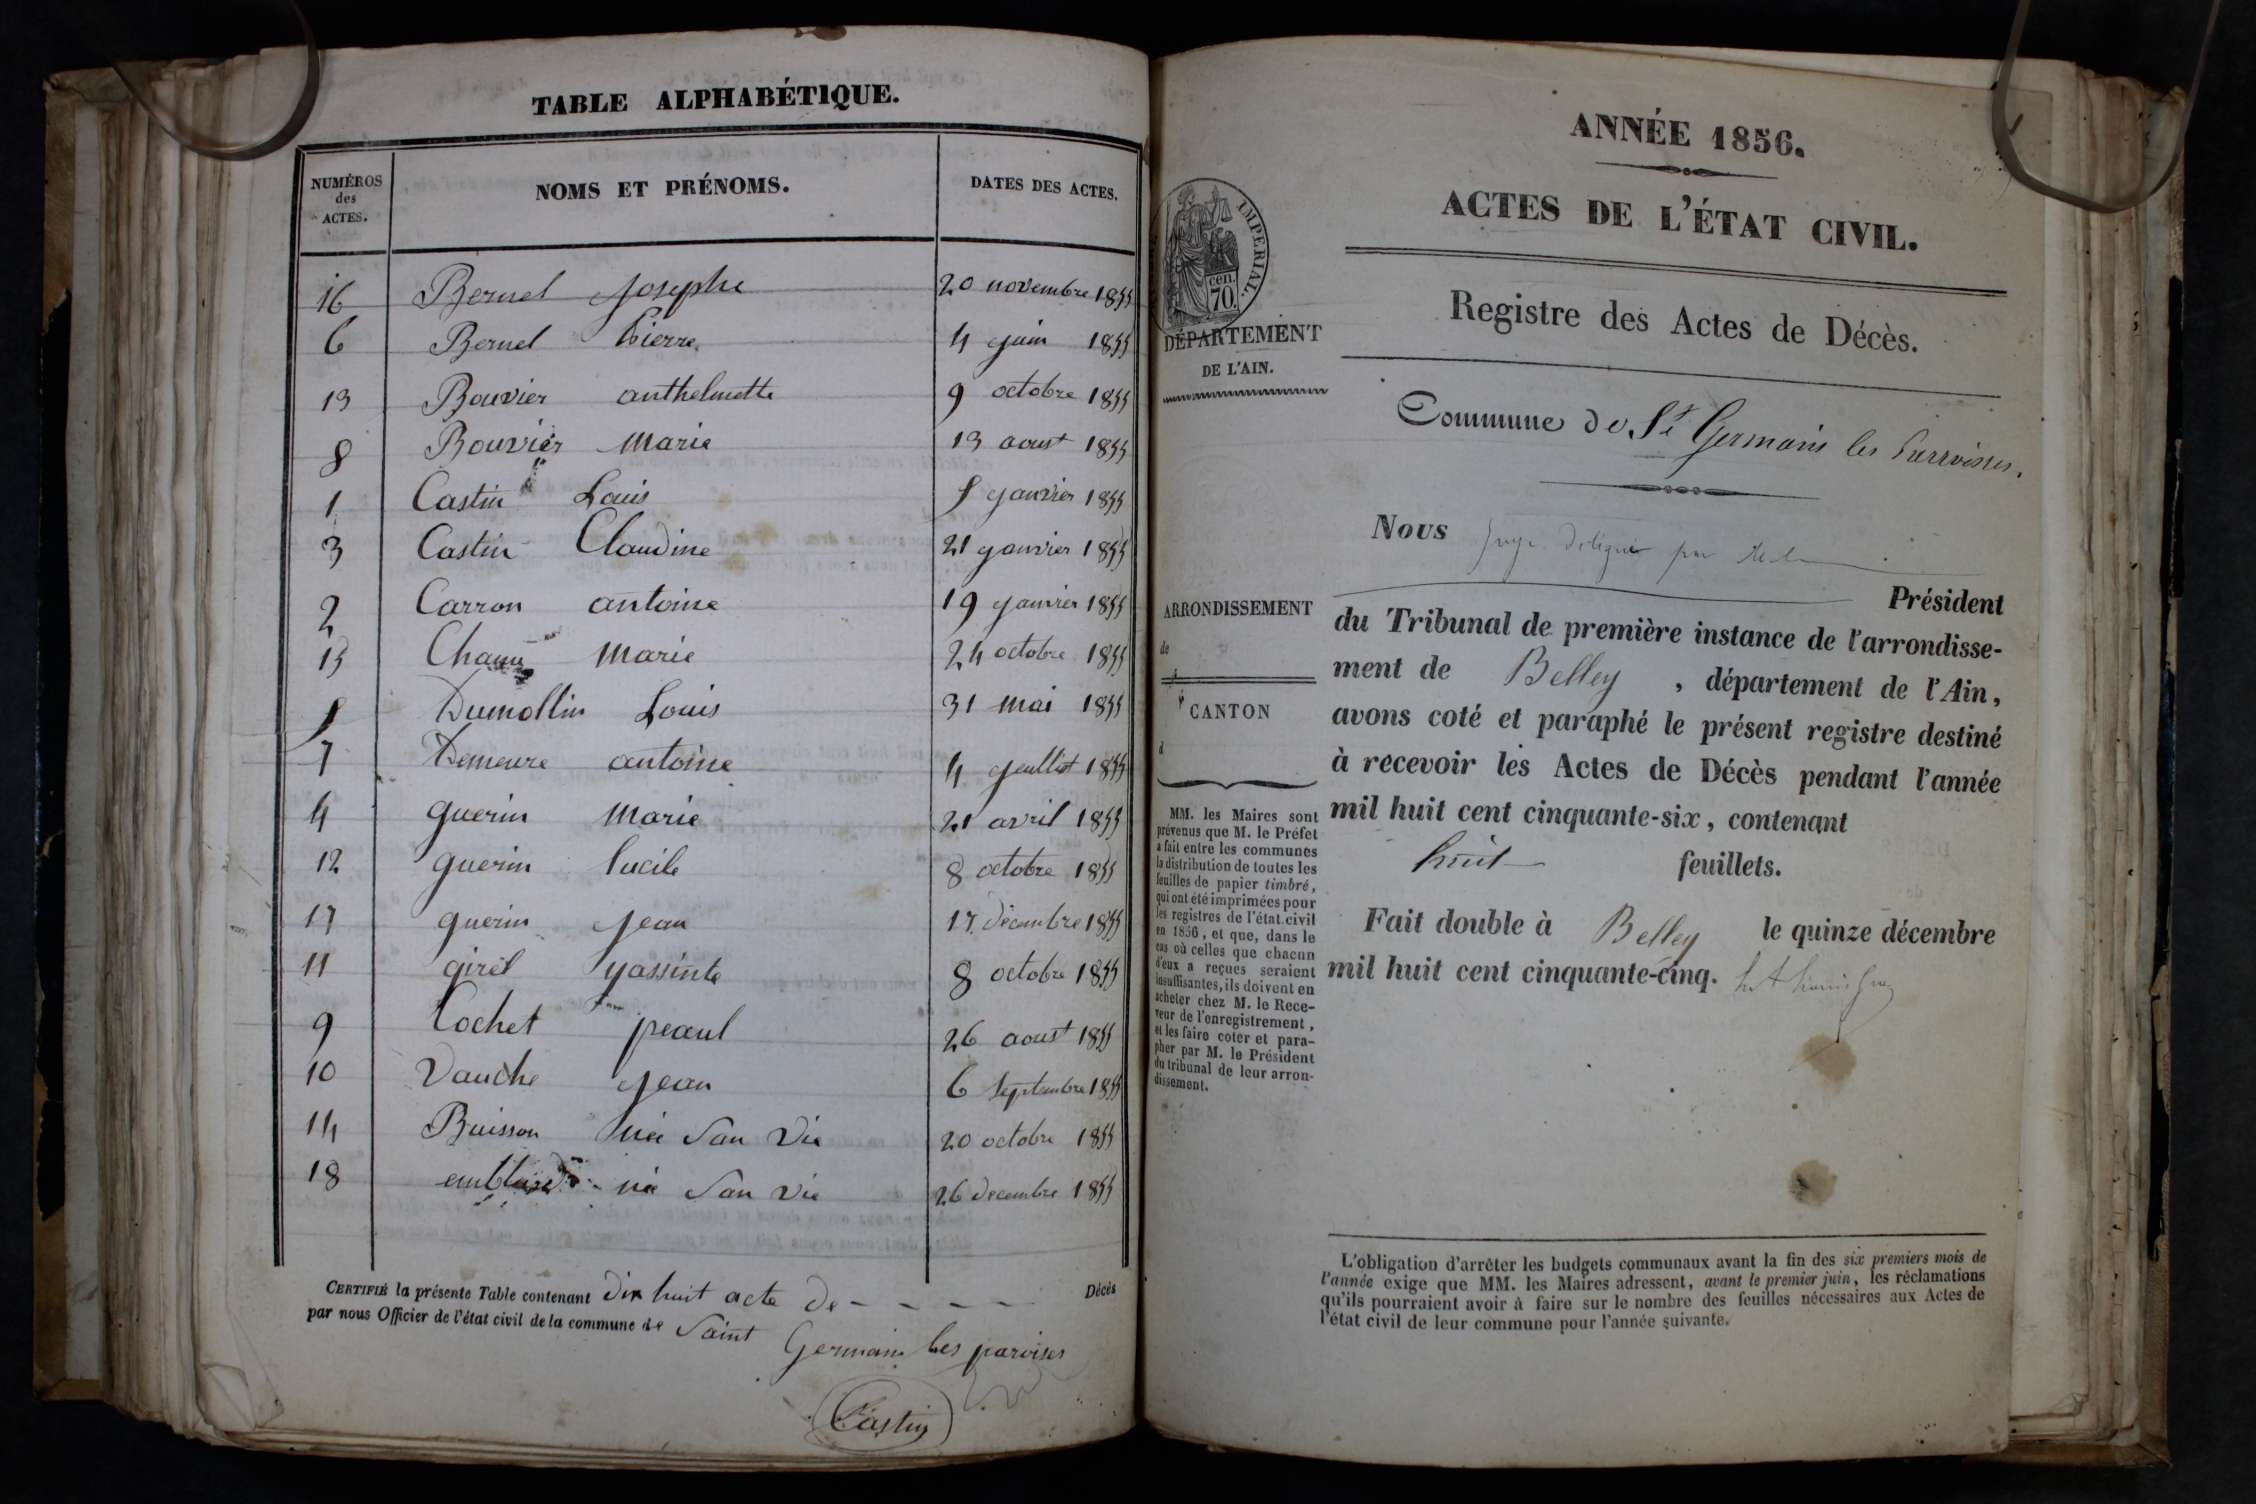 TABLE ALPHABÉTIQUE.
NUMÉROS des ACTES. NOMS ET PRÉNOMS. DATES DES ACTES.
16 Bernel Josephe 20 novembre 1855
6 Bernel Pierre 4 juin 1855
13 Bouvier anthelmette 9 octobre 1855
8 Bouvier Marie 13 aoust 1855
1 Castin Louis 5 janvier 1855
3 Castin Claudine 21 janvier 1855
2 Carron antoine 19 janvier 1855
15 Marie 24 octobre 1855
5 Dumollin Louis 31 mai 1855
7 Demeure antoine 4 jeullet 1855
4 guerin Marie 21 avril 1855
12 guerin lucile 8 octobre 1855
17 guerin jean 17 décembre 1855
11 girel yassinte 8 octobre 1855
9 Cochet peaul 26 aoust 1855
10 Vauche jean 6 septembre 1855
14 Buisson née San Vie 20 octobre 1855
18 né San vie 26 decembre 1855
CERTIFIÉ la présente Table contenant dix huit acte de - - - - Décès
par nous Officier de l'état civil de la commune de Saint
Germain les paroises
Castin
ANNÉE 1856.
ACTES DE L'ÉTAT CIVIL.
IMPERIAL.
cen.
70.
Registre des Actes de Décès.
DÉPARTEMENT
DE L'AIN.
Commune de St Germain les Parroisses.
Nous juge délégué par
Président
ARRONDISSEMENT
de
du Tribunal de première instance de l'arrondisse-
ment de Belley, département de l'Ain,
CANTON
d
avons coté et paraphé le présent registre destiné
à recevoir les Actes de Décès pendant l'année
mil huit cent cinquante-six, contenant
huit feuillets.
Fait double à Belley le quinze décembre
mil huit cent cinquante-cinq.
MM. les Maires sont
prévenus que M. le Préfet
a fait entre les communes
la distribution de toutes les
feuilles de papier timbré,
qui ont été imprimées pour
les registres de l'état civil
en 1856, et que, dans le
cas où celles que chacun
d'eux a reçues seraient
insuffisantes, ils doivent en
acheter chez M. le Rece-
veur de l'enregistrement,
et les faire coter et para-
pher par M. le Président
du tribunal de leur arron-
dissement.
L'obligation d'arrêter les budgets communaux avant la fin des six premiers mois de
l'année exige que MM. les Maires adressent, avant le premier juin, les réclamations
qu'ils pourraient avoir à faire sur le nombre des feuilles nécessaires aux Actes de
l'état civil de leur commune pour l'année suivante.